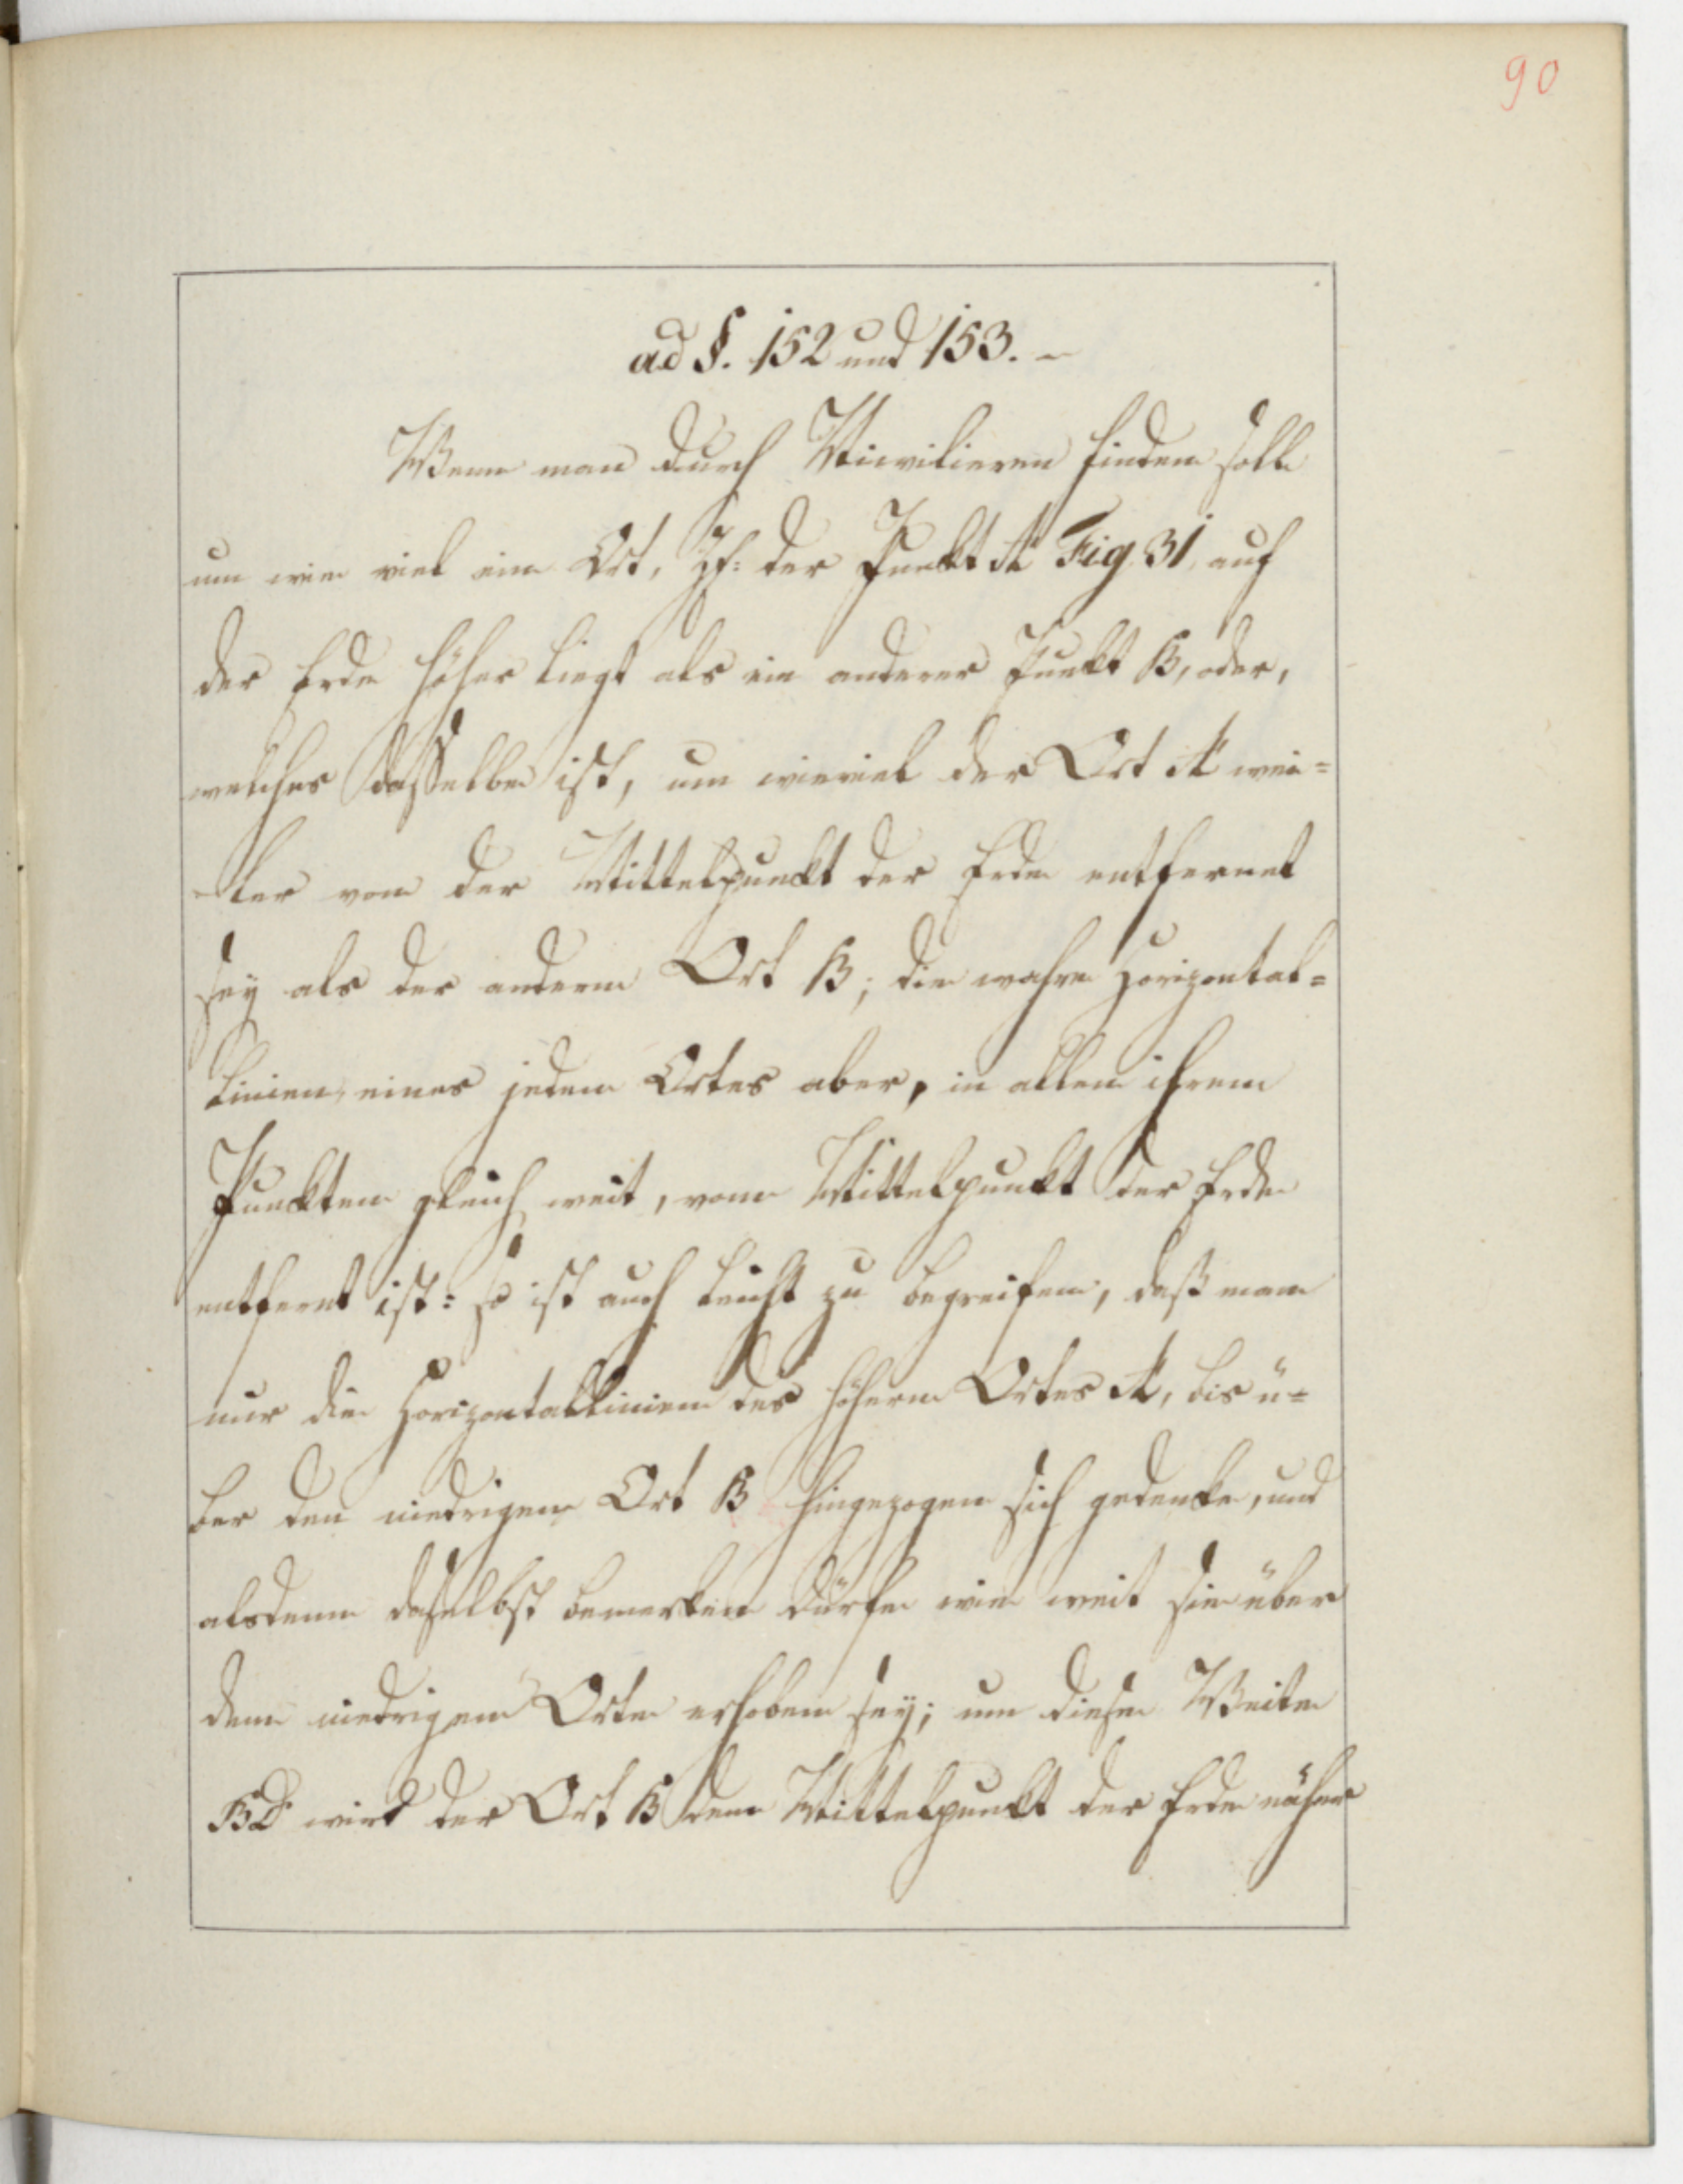 90
ad §. 152 und 153. –
Wenn man durch Nivilieren finden soll
um wie viel ein Ort, Zf: der Punkt A Fig. 31. auf
der Erde höher liegt als ein anderer Punkt B, oder,
welches dasselbe ist, um wieviel der Ort A wei=
ter von der Mittelpunckt der Erde entfernet
sey als der andere Ort B; die wahre Horizontal=
linien, eines jeden Ortes aber, in allen ihren
Punckten gleich weit, vom Mittelpunkt der Erde
entfernt ist: so ist auch leicht zu begreifen, daß man
nur die Horizontallinien des höhern Ortes A, bis ü=
ber den niedrigen Ort B hingezogen sich gedencke, und
alsdenn daselbst bemerken dürfe wie weit sie über
dem niedrigen Orte erhoben sey; um diese Weite
BD wird der Ort B dem Mittelpunkt der Erde näher